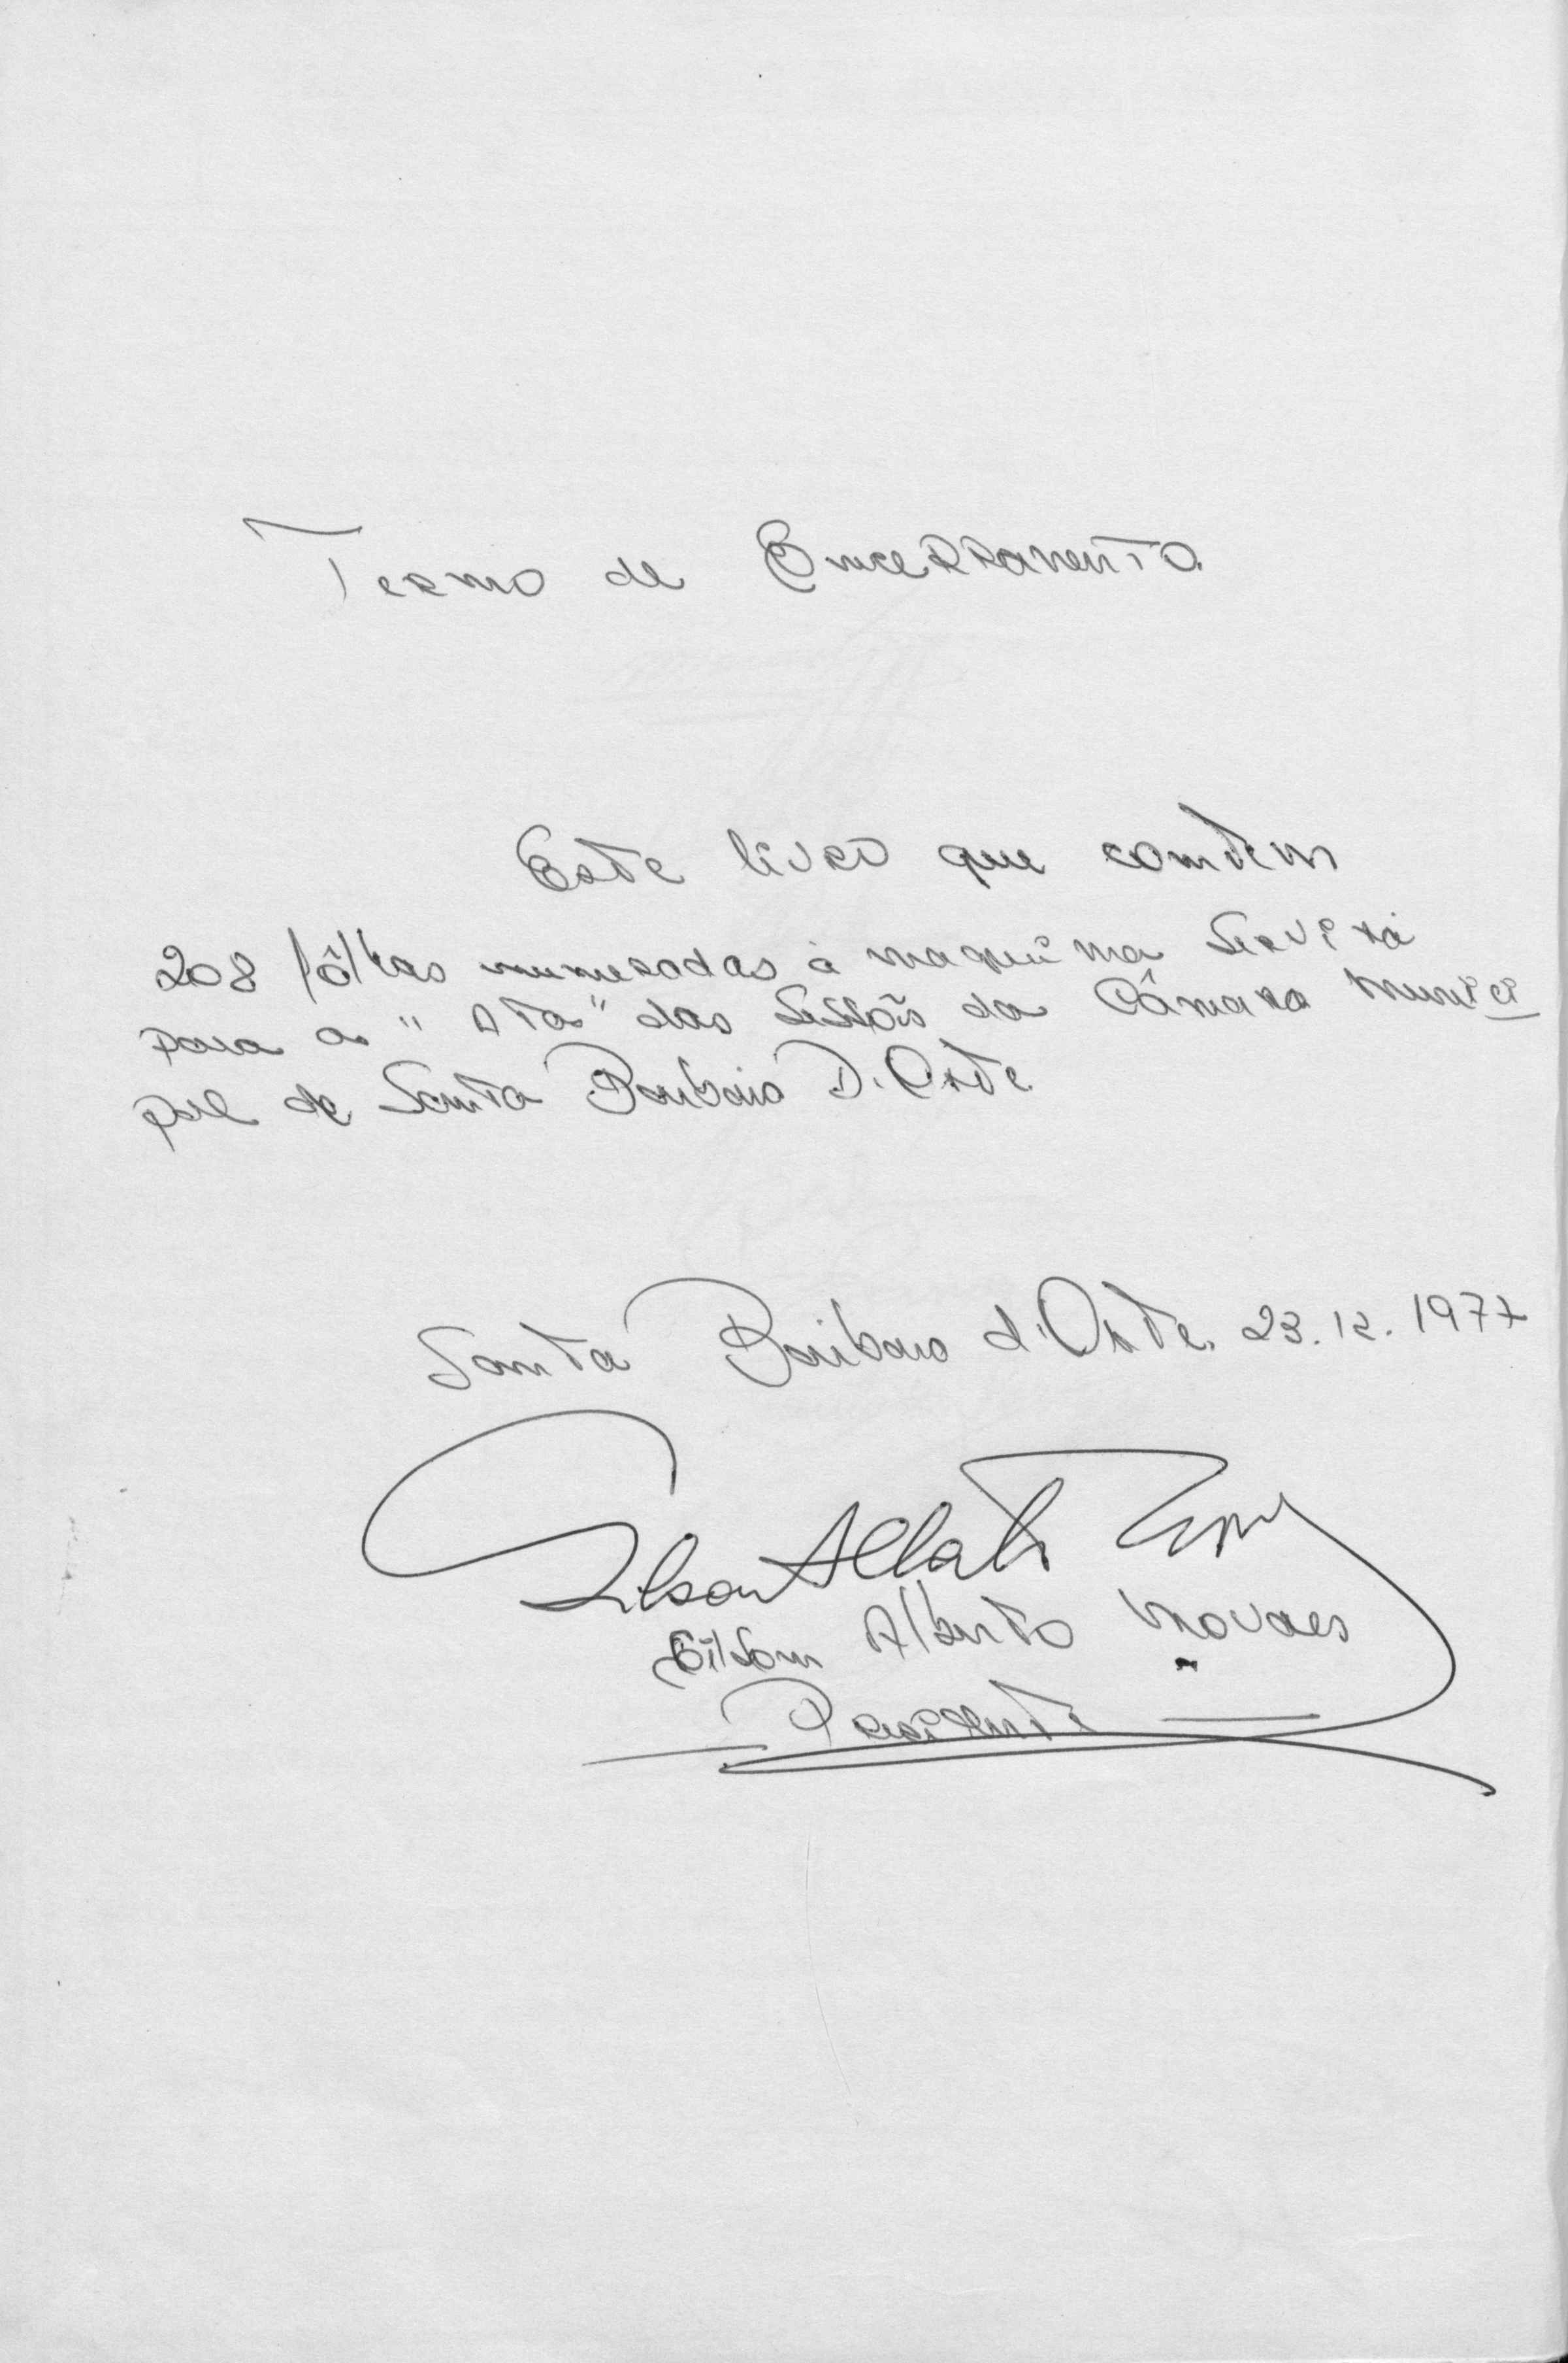 Termo de Encerramento.
Este livro que contem
208 fôlhas numeradas à maquina servirá
para a "Ata" das Sessões da Câmara Munici
pal de Santa Barbara D. Oeste
Santa Barbara d'Oeste. 23.12.1977
Gilson Alberto Novaes
Presidente